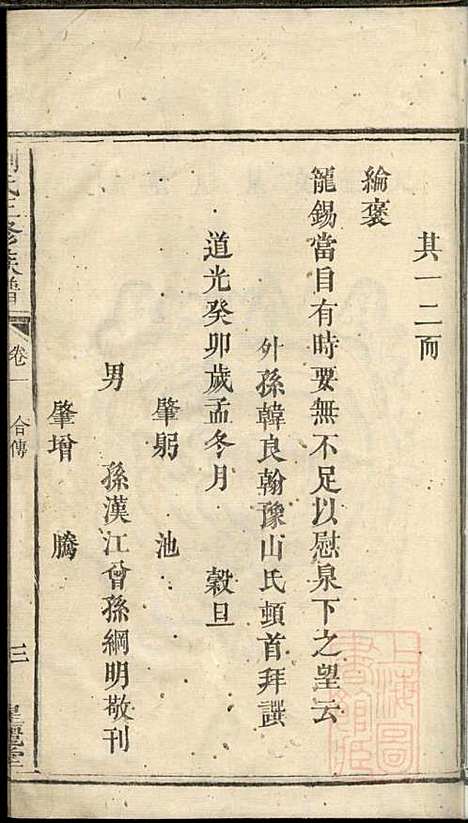 其一二而
綸褒
寵錫當自有時要無不足以慰泉下之望云
外孫韓良翰豫山氏頓首拜譔
道光癸卯歲孟冬月 穀旦
肇躬 池
男 孫漢江曾孫綱明敬刊
肇增 騰
氏三修族譜
卷一 合傳
三
上海圖書館藏